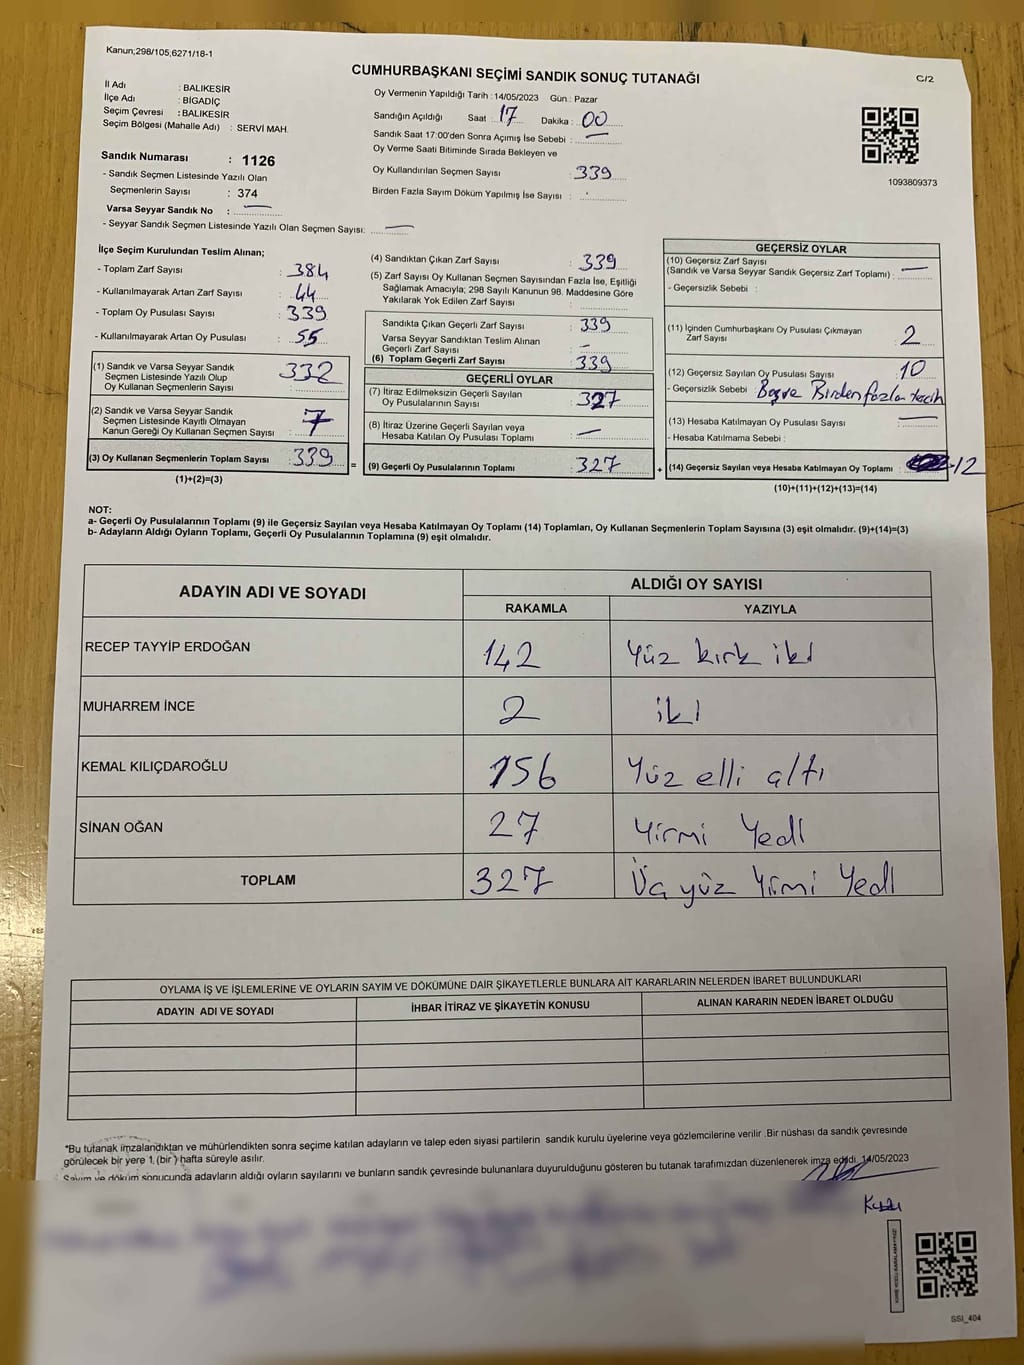 Kanun;298/105,6271/18-1
CUMHURBAŞKANI SEÇİMİ SANDIK SONUÇ TUTANAĞI
C/2
İl Adı : BALIKESİR
İlçe Adı : BİGADİÇ
Seçim Çevresi : BALIKESİR
Seçim Bölgesi (Mahalle Adı) : SERVİ MAH.
Sandık Numarası : 1126
- Sandık Seçmen Listesinde Yazılı Olan
Seçmenlerin Sayısı : 374
Varsa Seyyar Sandık No : —
- Seyyar Sandık Seçmen Listesinde Yazılı Olan Seçmen Sayısı: —
Oy Vermenin Yapıldığı Tarih : 14/05/2023 Gün : Pazar
Sandığın Açıldığı Saat : 17 Dakika : 00
Sandık Saat 17:00'den Sonra Açımış İse Sebebi : —
Oy Verme Saati Bitiminde Sırada Bekleyen ve
Oy Kullandırılan Seçmen Sayısı : 339
Birden Fazla Sayım Döküm Yapılmış İse Sayısı :
1093809373
İlçe Seçim Kurulundan Teslim Alınan;
- Toplam Zarf Sayısı : 384
- Kullanılmayarak Artan Zarf Sayısı : 44
- Toplam Oy Pusulası Sayısı : 339
- Kullanılmayarak Artan Oy Pusulası : 55
(1) Sandık ve Varsa Seyyar Sandık
Seçmen Listesinde Yazılı Olup
Oy Kullanan Seçmenlerin Sayısı : 332
(2) Sandık ve Varsa Seyyar Sandık
Seçmen Listesinde Kayıtlı Olmayan
Kanun Gereği Oy Kullanan Seçmen Sayısı : 7
(3) Oy Kullanan Seçmenlerin Toplam Sayısı : 339 =
(1)+(2)=(3)
(4) Sandıktan Çıkan Zarf Sayısı : 339
(5) Zarf Sayısı Oy Kullanan Seçmen Sayısından Fazla İse, Eşitliği
Sağlamak Amacıyla; 298 Sayılı Kanunun 98. Maddesine Göre
Yakılarak Yok Edilen Zarf Sayısı :
Sandıkta Çıkan Geçerli Zarf Sayısı : 339
Varsa Seyyar Sandıktan Teslim Alınan
Geçerli Zarf Sayısı : —
(6) Toplam Geçerli Zarf Sayısı : 339
GEÇERLİ OYLAR
(7) İtiraz Edilmeksizin Geçerli Sayılan
Oy Pusulalarının Sayısı : 327
(8) İtiraz Üzerine Geçerli Sayılan veya
Hesaba Katılan Oy Pusulası Toplamı : —
(9) Geçerli Oy Pusulalarının Toplamı : 327 +
GEÇERSİZ OYLAR
(10) Geçersiz Zarf Sayısı
(Sandık ve Varsa Seyyar Sandık Geçersiz Zarf Toplamı) : —
- Geçersizlik Sebebi :
(11) İçinden Cumhurbaşkanı Oy Pusulası Çıkmayan
Zarf Sayısı : 2
(12) Geçersiz Sayılan Oy Pusulası Sayısı : 10
- Geçersizlik Sebebi : Boş ve Birden fazla tercih
(13) Hesaba Katılmayan Oy Pusulası Sayısı : —
- Hesaba Katılmama Sebebi :
(14) Geçersiz Sayılan veya Hesaba Katılmayan Oy Toplamı : 12
(10)+(11)+(12)+(13)=(14)
NOT:
a- Geçerli Oy Pusulalarının Toplamı (9) ile Geçersiz Sayılan veya Hesaba Katılmayan Oy Toplamı (14) Toplamları, Oy Kullanan Seçmenlerin Toplam Sayısına (3) eşit olmalıdır. (9)+(14)=(3)
b- Adayların Aldığı Oyların Toplamı, Geçerli Oy Pusulalarının Toplamına (9) eşit olmalıdır.
ADAYIN ADI VE SOYADI ALDIĞI OY SAYISI
RAKAMLA YAZIYLA
RECEP TAYYİP ERDOĞAN 142 Yüz kırk iki
MUHARREM İNCE 2 iki
KEMAL KILIÇDAROĞLU 156 Yüz elli altı
SİNAN OĞAN 27 Yirmi Yedi
TOPLAM 327 Üç yüz Yirmi Yedi
OYLAMA İŞ VE İŞLEMLERİNE VE OYLARIN SAYIM VE DÖKÜMÜNE DAİR ŞİKAYETLERLE BUNLARA AİT KARARLARIN NELERDEN İBARET BULUNDUKLARI
ADAYIN ADI VE SOYADI İHBAR İTİRAZ VE ŞİKAYETİN KONUSU ALINAN KARARIN NEDEN İBARET OLDUĞU
*Bu tutanak imzalandıktan ve mühürlendikten sonra seçime katılan adayların ve talep eden siyasi partilerin sandık kurulu üyelerine veya gözlemcilerine verilir .Bir nüshası da sandık çevresinde
görülecek bir yere 1 (bir ) hafta süreyle asılır.
Sayım ve döküm sonucunda adayların aldığı oyların sayılarını ve bunların sandık çevresinde bulunanlara duyurulduğunu gösteren bu tutanak tarafımızdan düzenlenerek imza edildi. 14/05/2023
SSI_404